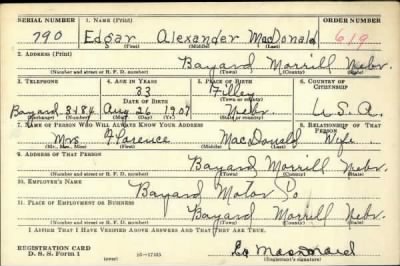 SERIAL NUMBER 1. NAME (Print) ORDER NUMBER
790 Edgar Alexander MacDonald 619
(First) (Middle) (Last)
2. ADDRESS (Print)
Bayard Morrill Nebr.
(Number and street or R. F. D. number) (Town) (County) (State)
3. TELEPHONE 4. AGE IN YEARS 5. PLACE OF BIRTH 6. COUNTRY OF CITIZENSHIP
33 Filley
DATE OF BIRTH (Town or county)
Bayard Aug 26 1907 Nebr. U.S.A.
(Exchange) (Number) (Mo.) (Day) (Yr.) (State or country)
7. NAME OF PERSON WHO WILL ALWAYS KNOW YOUR ADDRESS 8. RELATIONSHIP OF THAT PERSON
Mrs Florence MacDonald Wife.
(Mr., Mrs., Miss) (First) (Middle) (Last)
9. ADDRESS OF THAT PERSON
Bayard Morrill Nebr.
(Number and street or R. F. D. number) (Town) (County) (State)
10. EMPLOYER'S NAME
Bayard Motor Co
11. PLACE OF EMPLOYMENT OR BUSINESS
Bayard Morrill Nebr.
(Number and street or R. F. D. number) (Town) (County) (State)
I AFFIRM THAT I HAVE VERIFIED ABOVE ANSWERS AND THAT THEY ARE TRUE.
REGISTRATION CARD
D. S. S. Form 1 (over) 16—17105
(Registrant's signature)